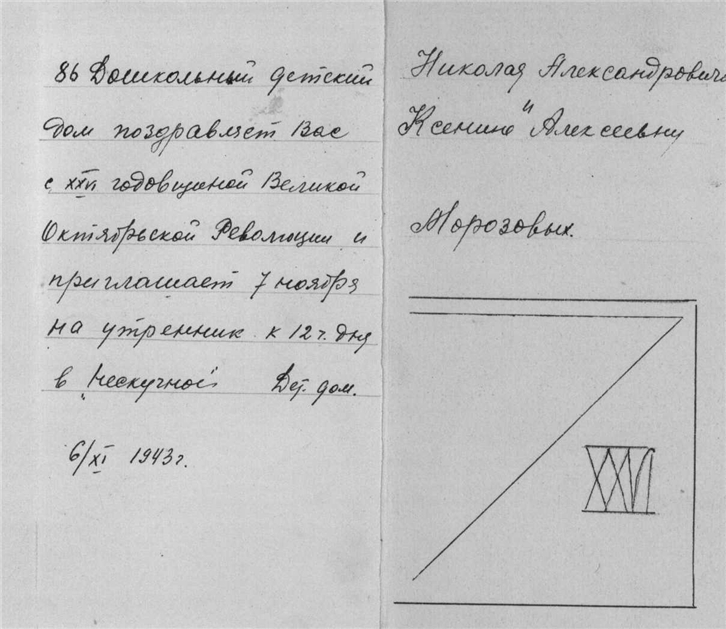 86 Дошкольный детский
дом поздравляет Вас
с XXVI годовщиной Великой
Октябрьской Революции и
приглашает 7 ноября
на утренник к 12 ч. дня
в "Нескучной" Дет. дом.
6/XI 1943 г.
Николая Александровича
и
Ксению Алексеевну
Морозовых.
XXVI